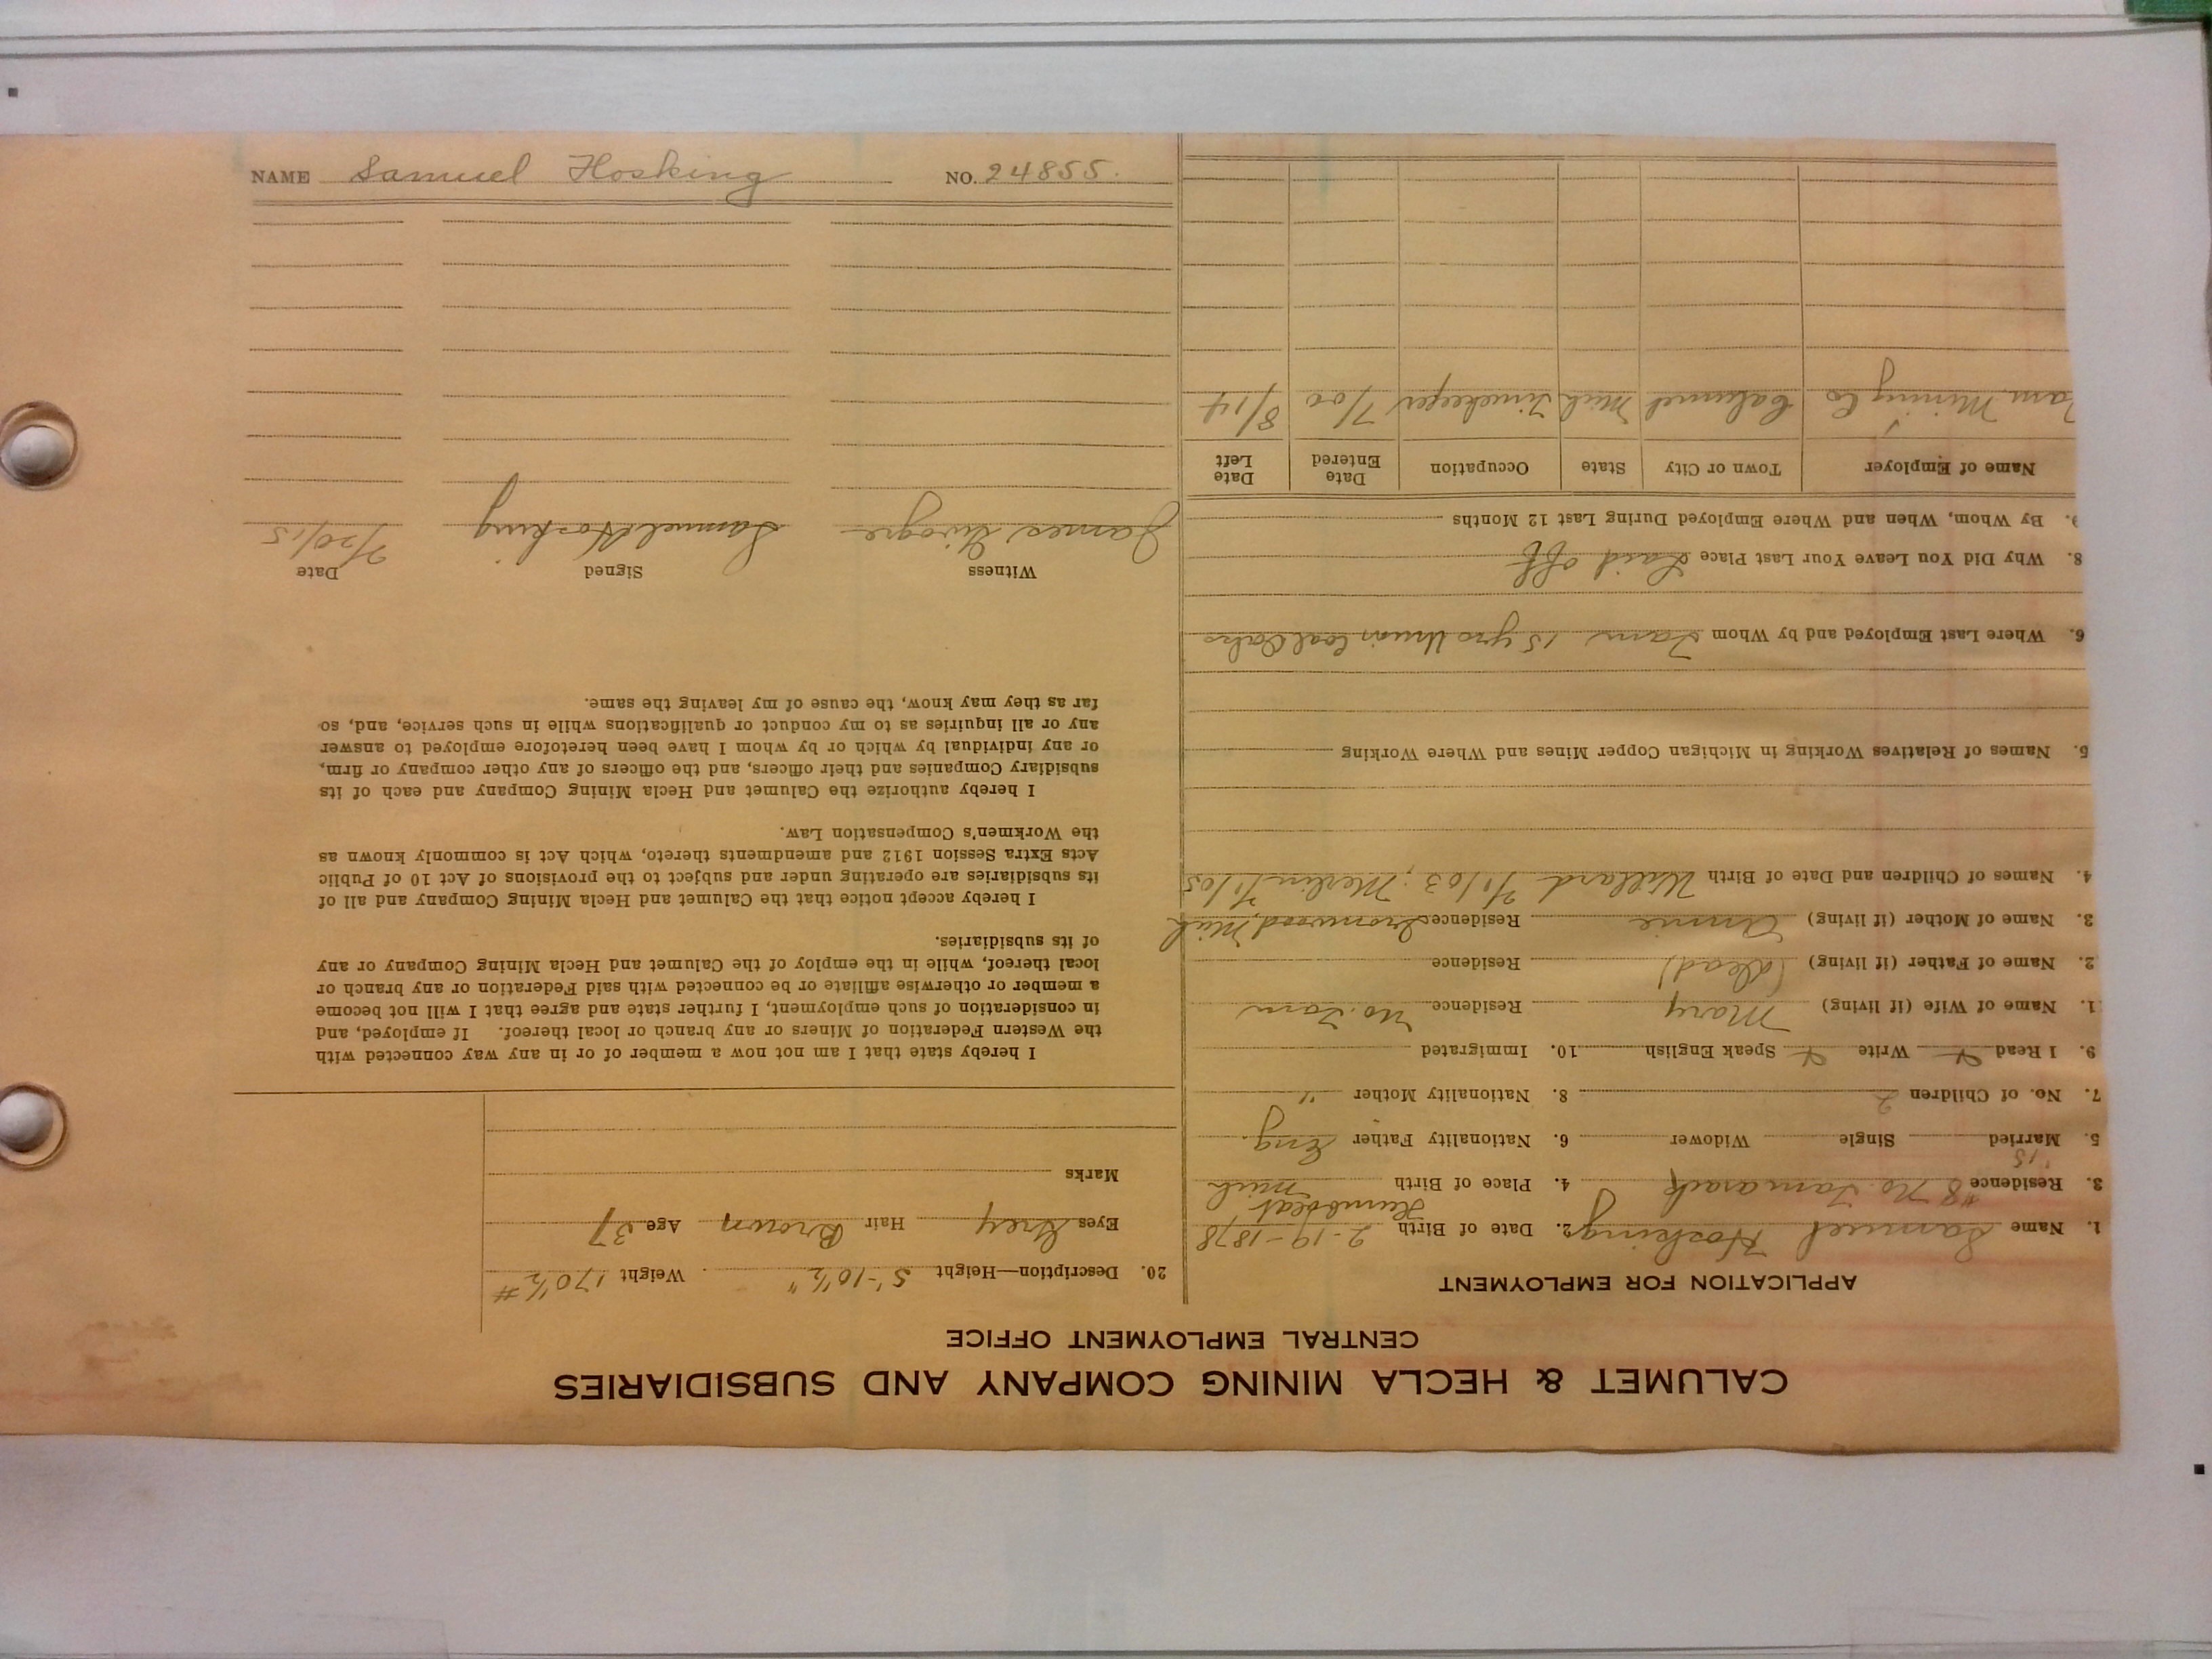 CALUMET & HECLA MINING COMPANY AND SUBSIDIARIES
CENTRAL EMPLOYMENT OFFICE
APPLICATION FOR EMPLOYMENT
1. Name Samuel Hosking 2. Date of Birth 2-19-1878
3. Residence #8 No. Tamarack 4. Place of Birth Humboldt Mich
'15
5. Married Single Widower 6. Nationality Father Eng.
7. No. of Children 2 8. Nationality Mother "
9. I Read Write Speak English 10. Immigrated
1. Name of Wife (if living) Mary Residence No. Tam
2. Name of Father (if living) (dead) Residence
3. Name of Mother (if living) Annie Residence Ironwood, Mich
4. Names of Children and Date of Birth Willard /03; Merlin /05
5. Names of Relatives Working in Michigan Copper Mines and Where Working
6. Where Last Employed and by Whom Tam 15 yrs Coal
8. Why Did You Leave Your Last Place Laid off
9. By Whom, When and Where Employed During Last 12 Months
Name of Employer Town or City State Occupation Date Entered Date Left
Tam. Mining Co Calumet Mich Timekeeper 7/00 8/14
20. Description—Height 5'-10½" Weight 170½ #
Eyes Grey Hair Brown Age 37
Marks
I hereby state that I am not now a member of or in any way connected with
the Western Federation of Miners or any branch or local thereof. If employed, and
in consideration of such employment, I further state and agree that I will not become
a member or otherwise affiliate or be connected with said Federation or any branch or
local thereof, while in the employ of the Calumet and Hecla Mining Company or any
of its subsidiaries.
I hereby accept notice that the Calumet and Hecla Mining Company and all of
its subsidiaries are operating under and subject to the provisions of Act 10 of Public
Acts Extra Session 1912 and amendments thereto, which Act is commonly known as
the Workmen's Compensation Law.
I hereby authorize the Calumet and Hecla Mining Company and each of its
subsidiary Companies and their officers, and the officers of any other company or firm,
or any individual by which or by whom I have been heretofore employed to answer
any or all inquiries as to my conduct or qualifications while in such service, and, so
far as they may know, the cause of my leaving the same.
Witness Signed Date
James Samuel Hosking 7/20/15
NAME Samuel Hosking NO. 24855.